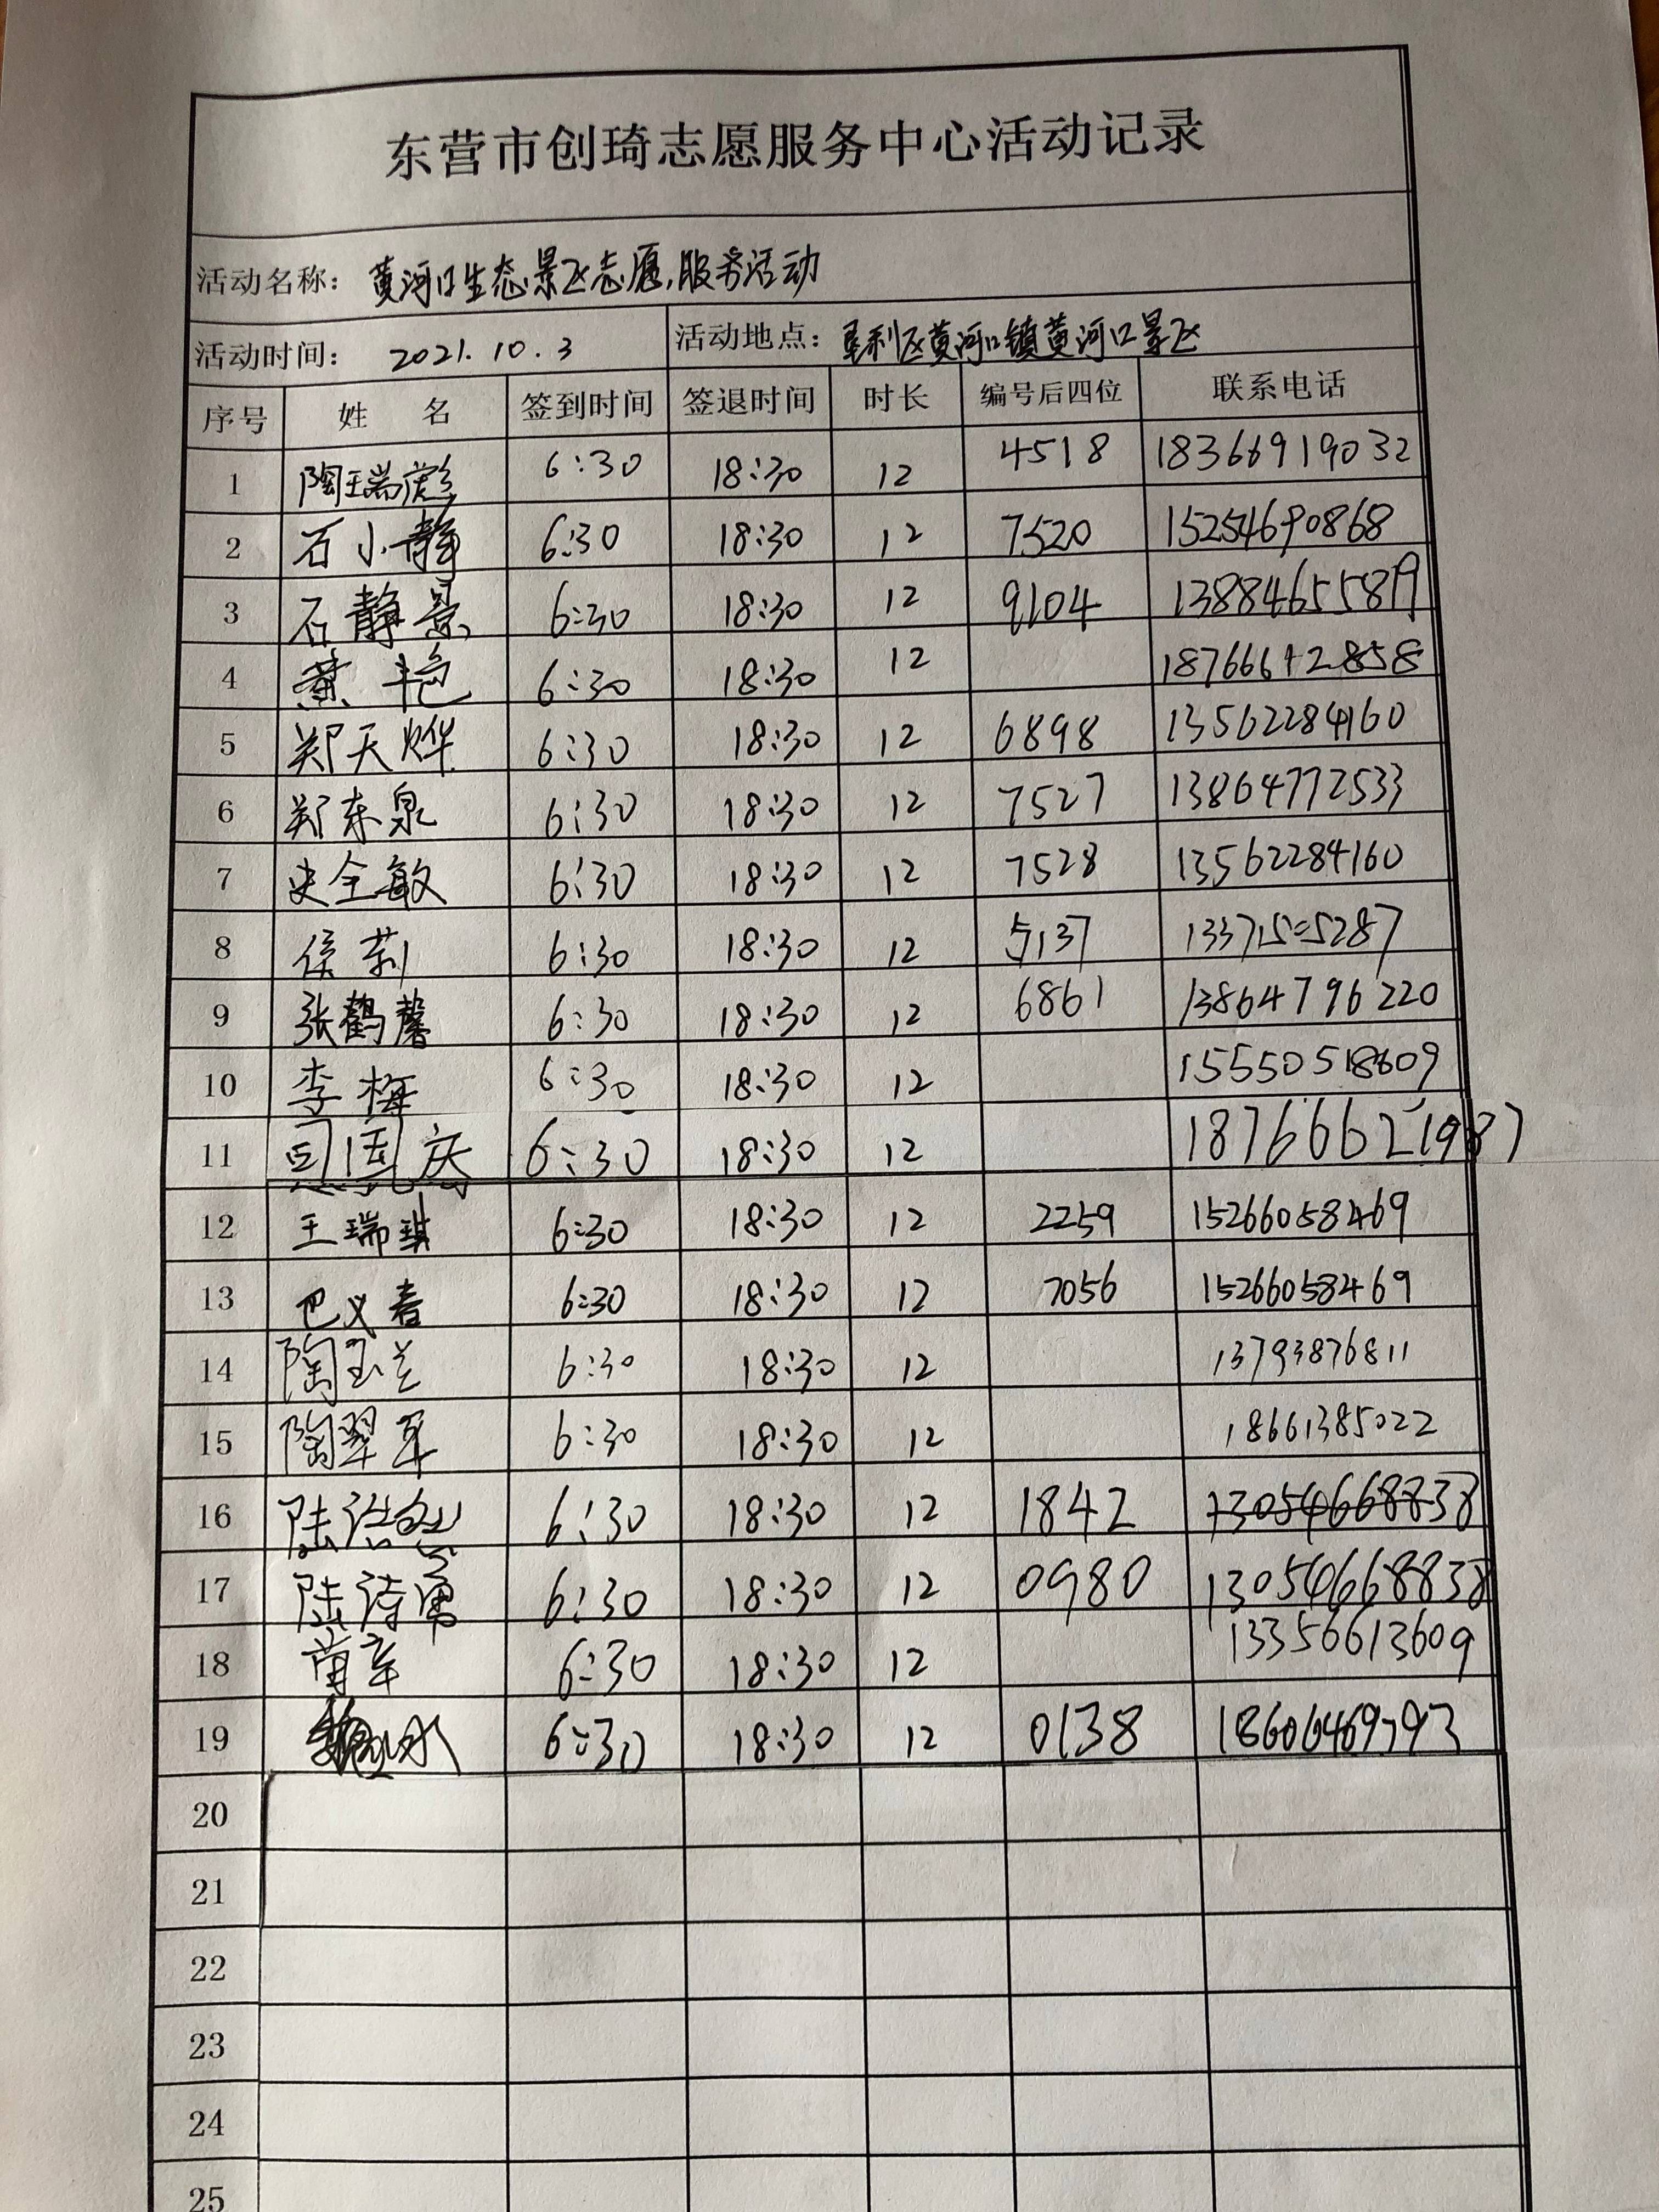 东营市创琦志愿服务中心活动记录
活动名称: 黄河口生态景区志愿服务活动
活动时间: 2021.10.3 活动地点: 垦利区黄河口镇黄河口景区
序号 姓 名 签到时间 签退时间 时长 编号后四位 联系电话
1 陶瑞彪 6:30 18:30 12 4518 18366919032
2 石小静 6:30 18:30 12 7520 15254690868
3 石静景 6:30 18:30 12 9104 13884655819
4 黄艳 6:30 18:30 12 18766612858
5 郑天烨 6:30 18:30 12 6898 13562284160
6 郑东泉 6:30 18:30 12 7527 13864772533
7 史全敏 6:30 18:30 12 7528 13562284160
8 侯莉 6:30 18:30 12 5137
9 张鹤馨 6:30 18:30 12 6861 13864796220
10 李梅 6:30 18:30 12 15550518609
11 国庆 6:30 18:30 12 18766621987
12 王瑞琪 6:30 18:30 12 2259 15266058469
13 巴义春 6:30 18:30 12 7056 15266058469
14 陶玉兰 6:30 18:30 12 13793876811
15 陶翠耳 6:30 18:30 12 18661385022
16 陆浩 6:30 18:30 12 1842 13054668838
17 陆诗 6:30 18:30 12 0980 13054668838
18 6:30 18:30 12 13356613609
19 6:30 18:30 12 0138 18606469793
20
21
22
23
24
25